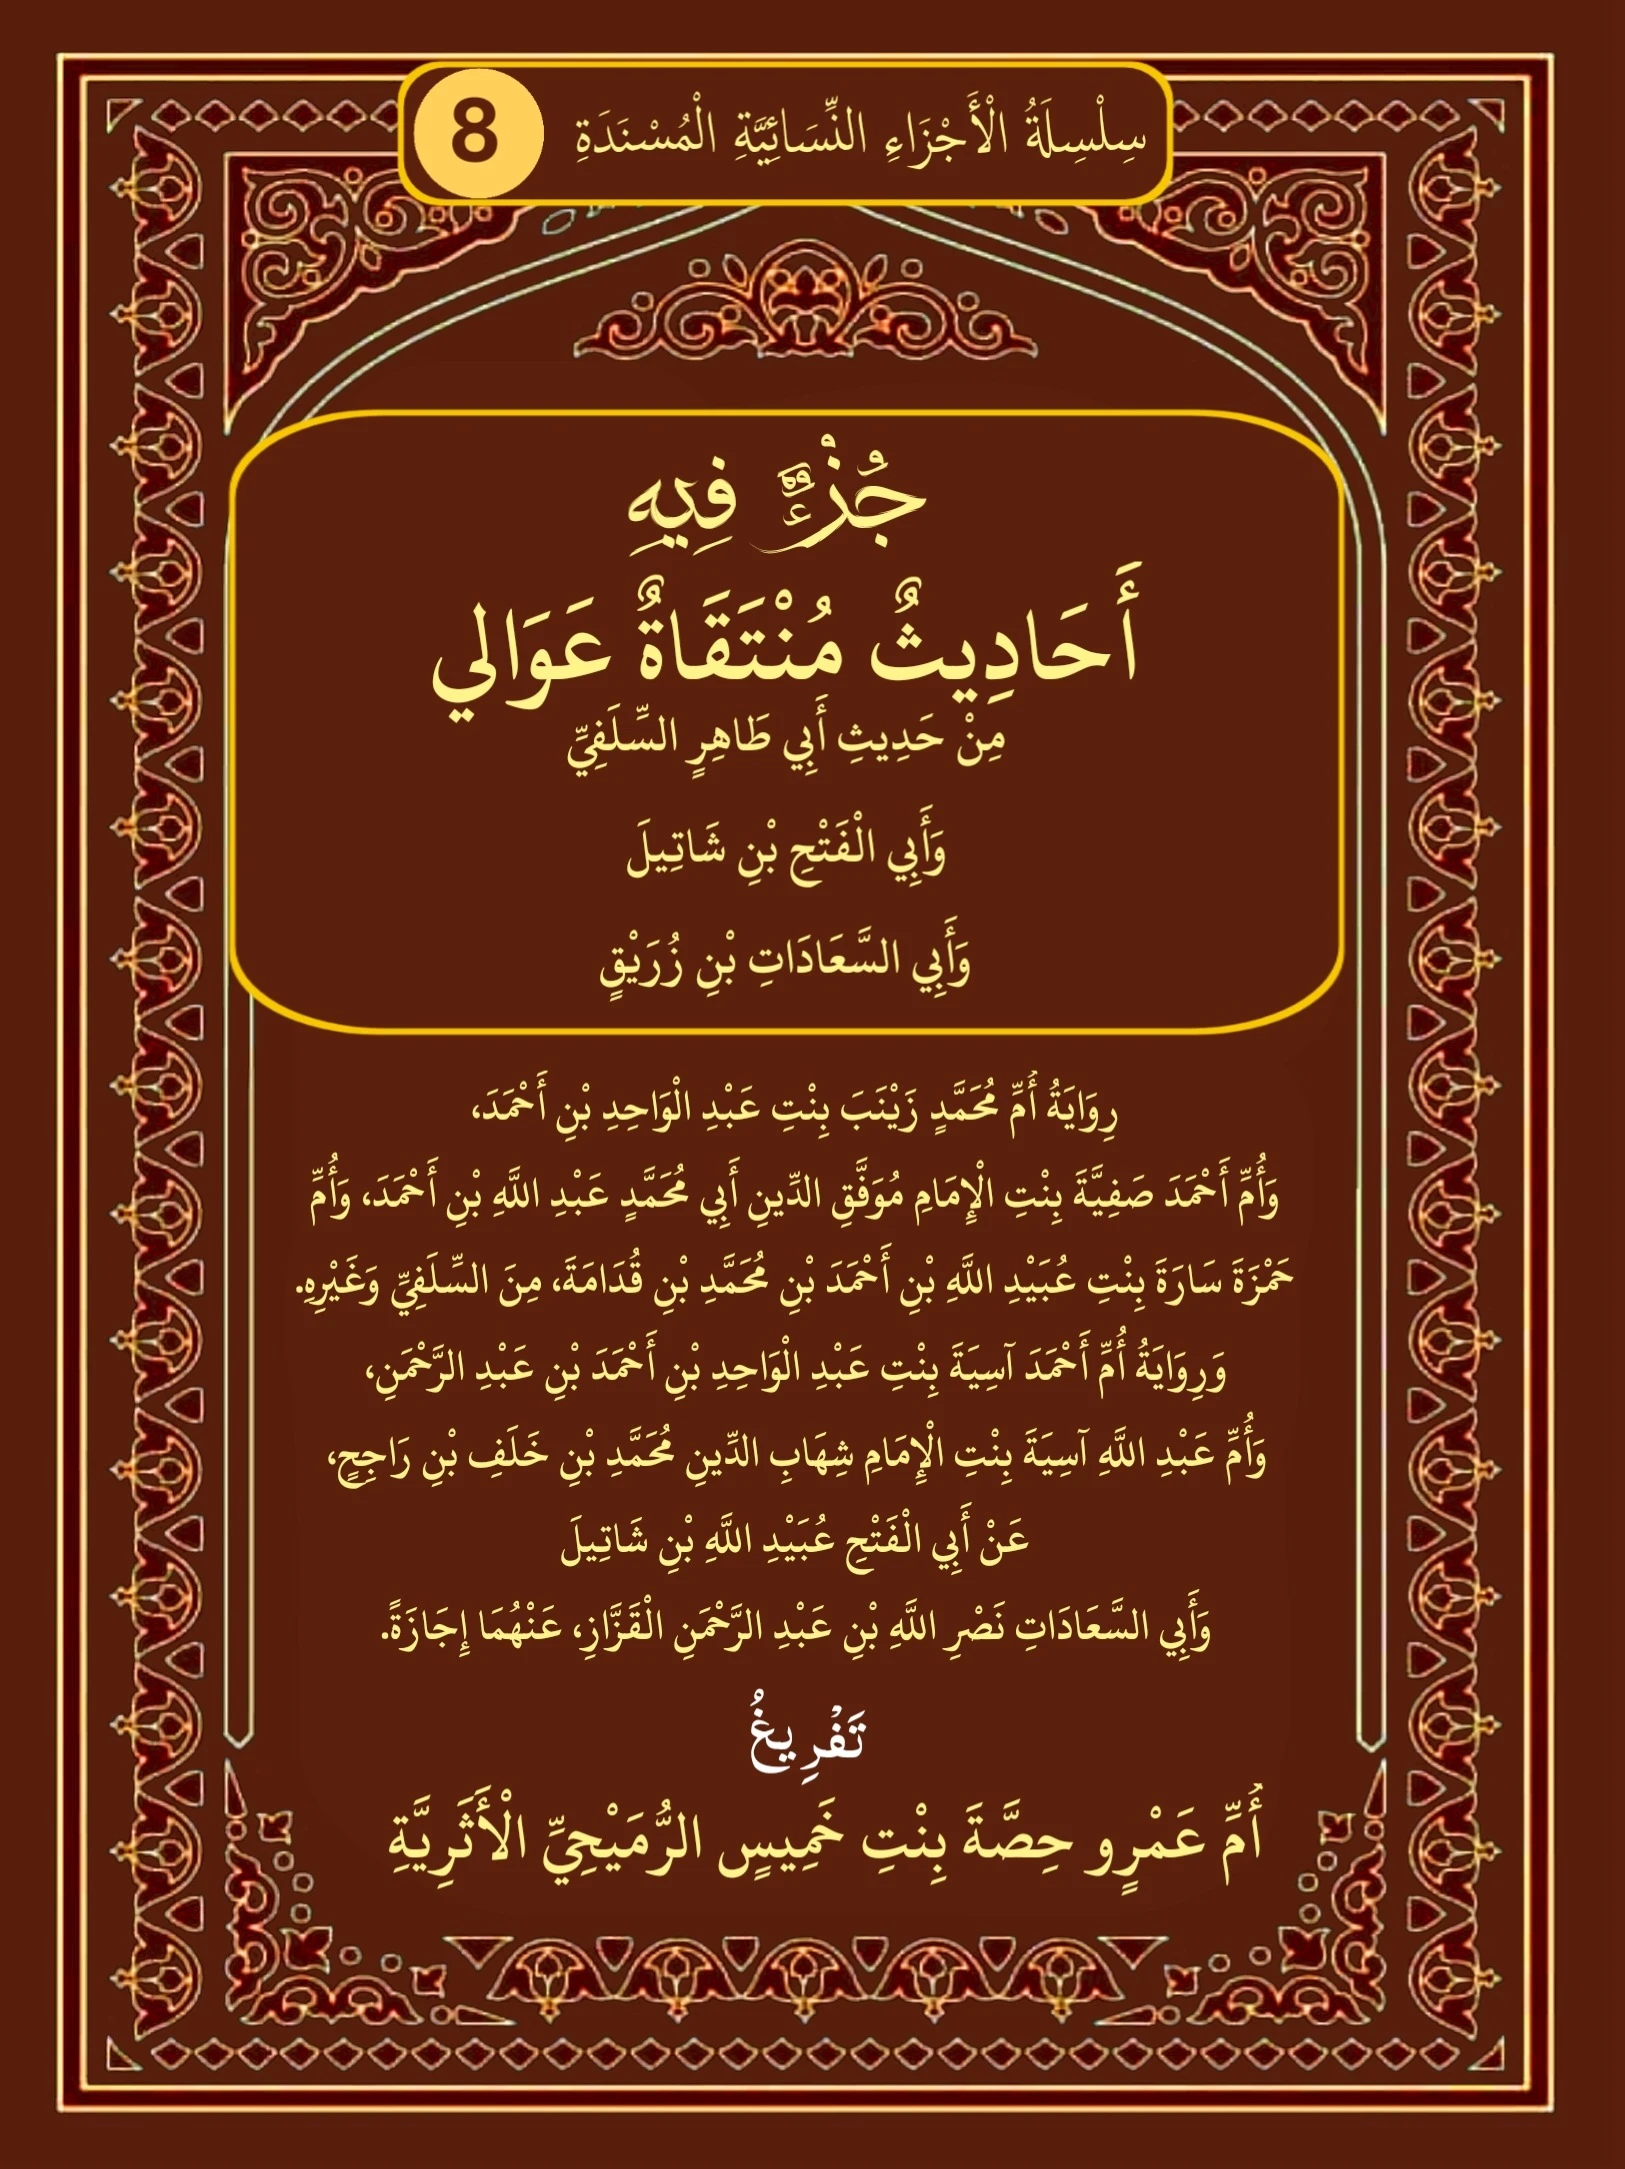 سِلْسِلَةُ الْأَجْزَاءِ النِّسَائِيَّةِ الْمُسْنَدَةِ 8
جُزْءٌ فِيهِ
أَحَادِيثٌ مُنْتَقَاةٌ عَوَالِي
مِنْ حَدِيثِ أَبِي طَاهِرٍ السِّلَفِيِّ
وَأَبِي الْفَتْحِ بْنِ شَاتِيلَ
وَأَبِي السَّعَادَاتِ بْنِ زُرَيْقٍ
رِوَايَةُ أُمِّ مُحَمَّدٍ زَيْنَبَ بِنْتِ عَبْدِ الْوَاحِدِ بْنِ أَحْمَدَ،
وَأُمِّ أَحْمَدَ صَفِيَّةَ بِنْتِ الْإِمَامِ مُوَفَّقِ الدِّينِ أَبِي مُحَمَّدٍ عَبْدِ اللَّهِ بْنِ أَحْمَدَ، وَأُمِّ
حَمْزَةَ سَارَةَ بِنْتِ عُبَيْدِ اللَّهِ بْنِ أَحْمَدَ بْنِ مُحَمَّدِ بْنِ قُدَامَةَ، مِنَ السِّلَفِيِّ وَغَيْرِهِ.
وَرِوَايَةُ أُمِّ أَحْمَدَ آسِيَةَ بِنْتِ عَبْدِ الْوَاحِدِ بْنِ أَحْمَدَ بْنِ عَبْدِ الرَّحْمَنِ،
وَأُمِّ عَبْدِ اللَّهِ آسِيَةَ بِنْتِ الْإِمَامِ شِهَابِ الدِّينِ مُحَمَّدِ بْنِ خَلَفِ بْنِ رَاجِحٍ،
عَنْ أَبِي الْفَتْحِ عُبَيْدِ اللَّهِ بْنِ شَاتِيلَ
وَأَبِي السَّعَادَاتِ نَصْرِ اللَّهِ بْنِ عَبْدِ الرَّحْمَنِ الْقَزَّازِ، عَنْهُمَا إِجَازَةً.
تَفْرِيغُ
أُمِّ عَمْرٍو حِصَّةَ بِنْتِ خَمِيسٍ الرُّمَيْحِيِّ الْأَثَرِيَّةِ